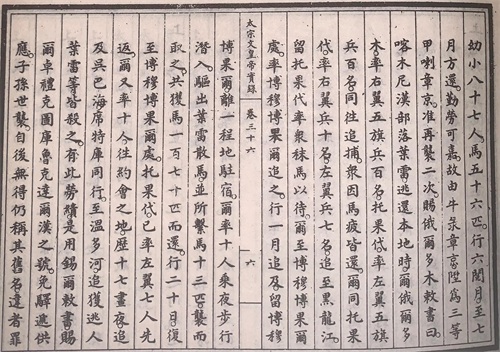 幼小八十七人馬五十六匹行六閱月至七
月方還勤勞可嘉故由牛彔章京陞爲三等
甲喇章京准再襲二次賜俄爾多木敕書曰
喀木尼漢部落葉雷逃還本地時爾俄爾多
木率右翼五旗兵百名托果代率左翼五旗
兵百名同往追捕衆因馬疲皆還爾同托果
代率右翼兵十名左翼兵七名追至黑龍江
留托果代率衆秣馬以待爾至博穆博果爾
處率博穆博果爾追之行一月追及留博穆
太宗文皇帝實錄 卷三十六 六
博果爾離一程地駐宿爾率十人乘夜步行
潛入驅出葉雷散馬並所繫馬十三匹襲而
取之共獲馬一百七十匹而還行二十日復
至博穆博果爾處托果代已率左翼七人先
返爾又率十人往約會之地歷十七晝夜追
及吳巴海席特庫同行至溫多河追獲逃人
葉雷等皆殺之有此勞績是用錫爾敕書賜
爾卓禮克圖庫魯克達爾漢之號免驛遞供
應子孫世襲自後無得仍稱其舊名違者罪